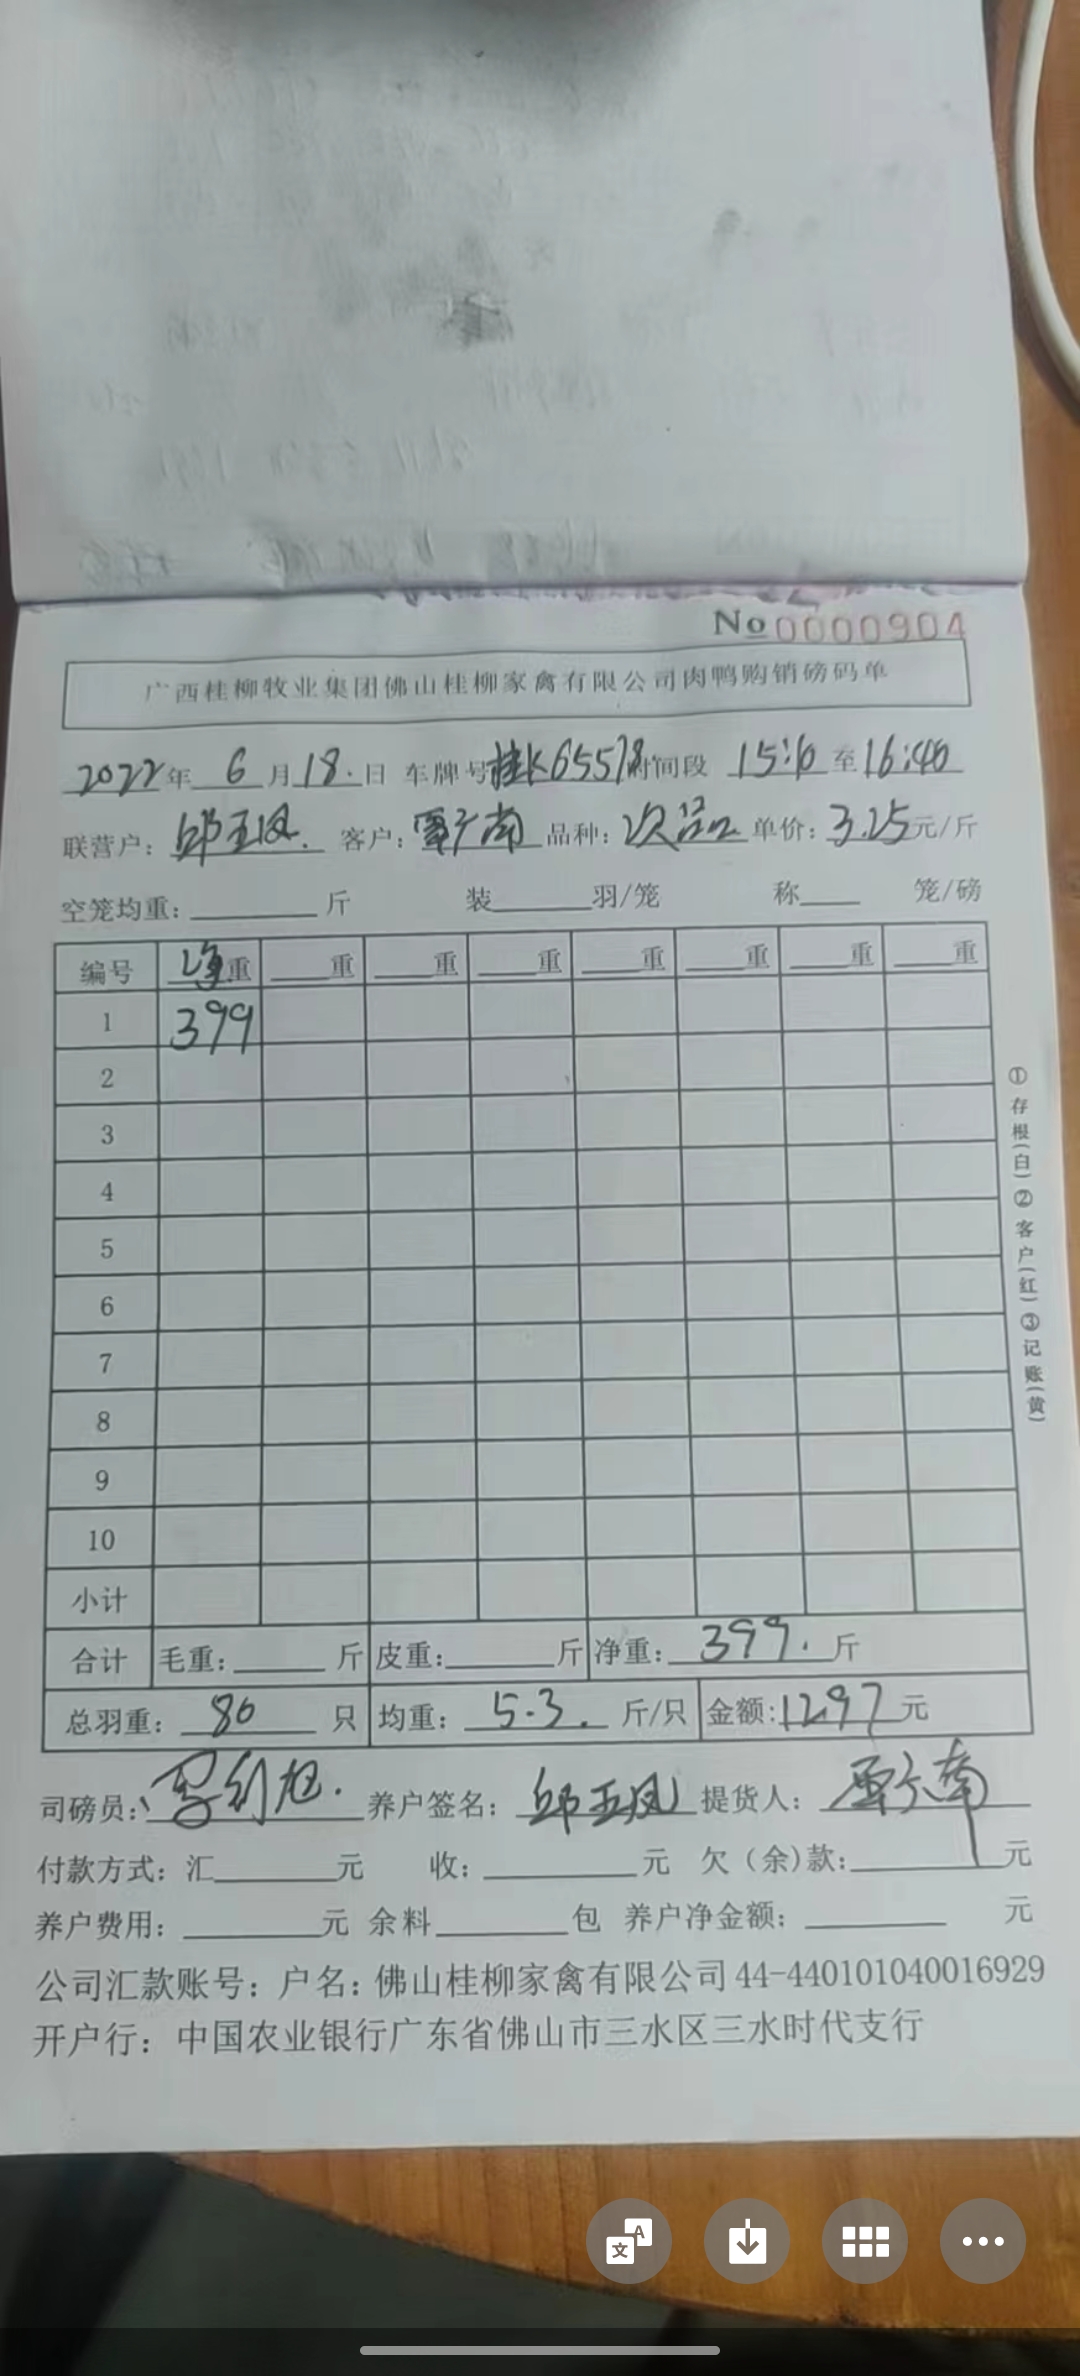 No 0000904
广西桂柳牧业集团佛山桂柳家禽有限公司肉鸭购销磅码单
2022年 6 月 18. 日 车牌号 桂K65578 时间段 15:10 至 16:40
联营户: 邱玉凤. 客户: 覃广南 品种: 次品 单价: 3.25 元/斤
空笼均重: 斤 装 羽/笼 称 笼/磅
编号 净重 重 重 重 重 重 重 重
1 399
2
3
4
5
6
7
8
9
10
小计
合计 毛重: 斤 皮重: 斤 净重: 399. 斤
总羽重: 80 只 均重: 5.3. 斤/只 金额: 1297 元
司磅员: 养户签名: 邱玉凤 提货人: 覃广南
付款方式: 汇 元 收: 元 欠（余)款: 元
养户费用: 元 余料 包 养户净金额: 元
公司汇款账号: 户名: 佛山桂柳家禽有限公司 44-440101040016929
开户行: 中国农业银行广东省佛山市三水区三水时代支行
①存根(白)②客户(红)③记账(黄)